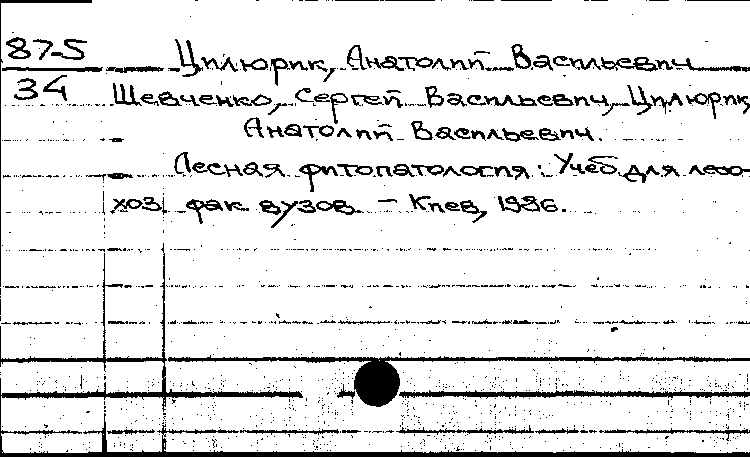 87-5
34
Цилюрик, Анатолий Васильевич
Шевченко, Сергей Васильевич, Цилюрик,
Анатолий Васильевич.
Лесная фитопатология: Учеб. для лесо-
хоз. фак. вузов. – Киев, 1986.